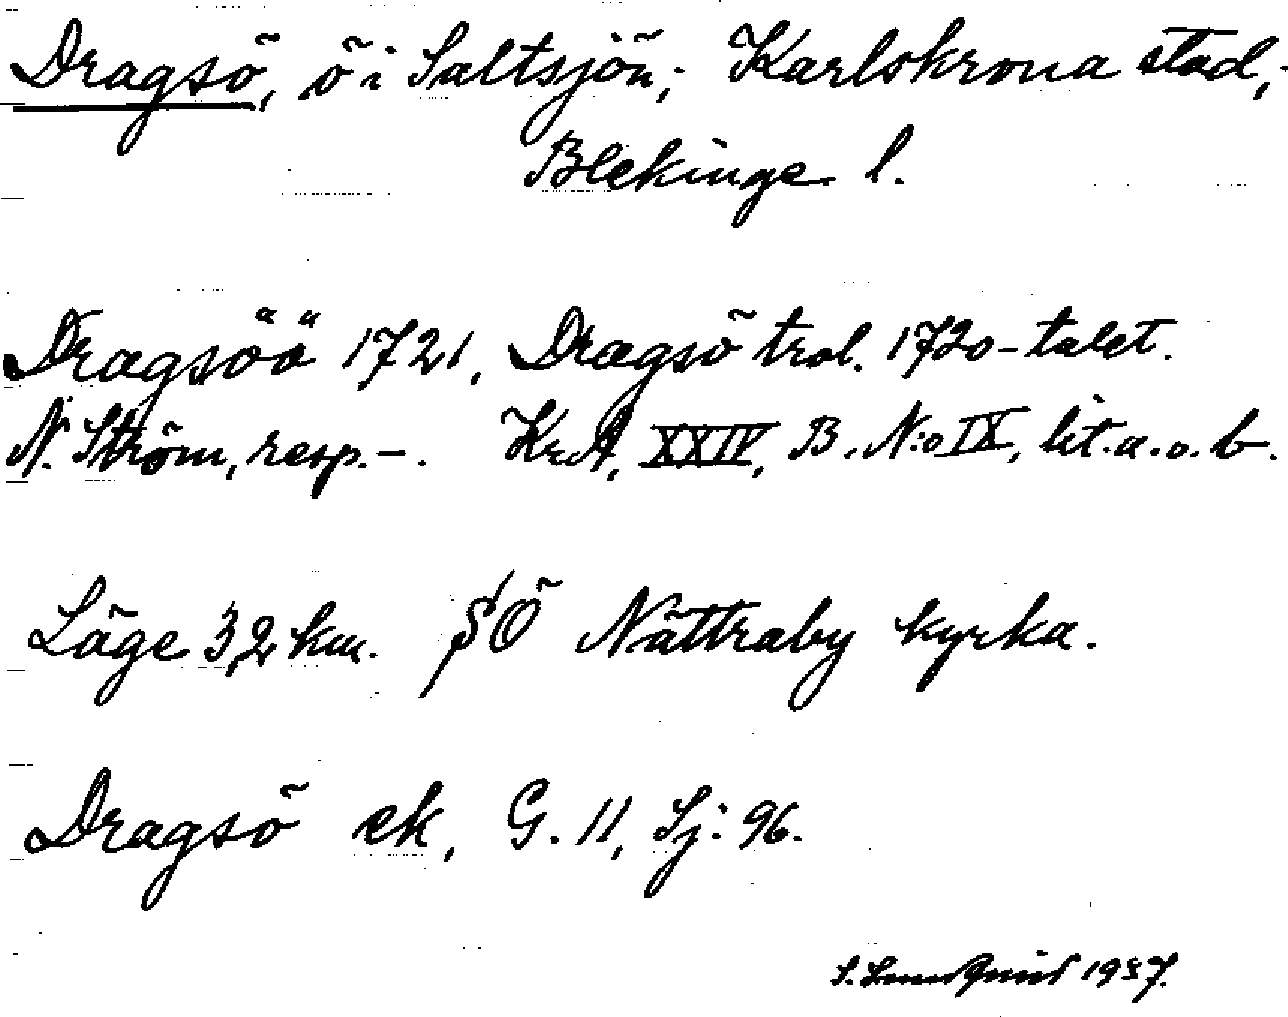 Dragsö, ö i Saltsjön; Karlskrona stad,
Blekinge l.
Dragsöö 1721, Dragsö trol. 1720-talet.
N. Ström, resp. -. KrA, XXIV, B. N:o IX, lit. a. o. b.
Läge 3,2 km. SÖ Nättraby kyrka.
Dragsö ek, G. 11, Sj: 96.
1937.